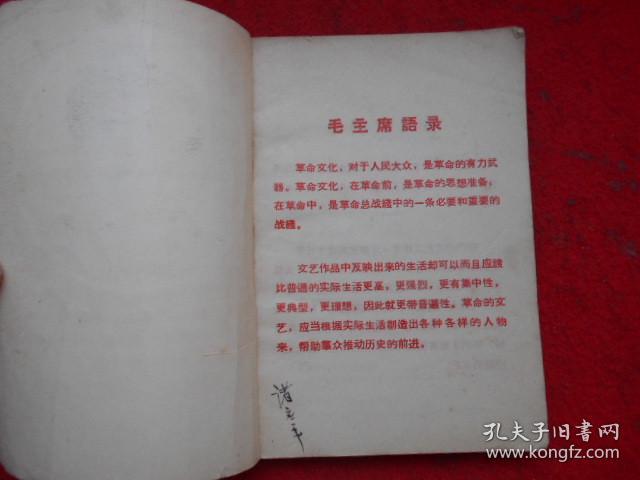 毛主席語录
革命文化，对于人民大众，是革命的有力武
器。革命文化，在革命前，是革命的思想准备；
在革命中，是革命总战綫中的一条必要和重要的
战綫。
文艺作品中反映出来的生活却可以而且应該
比普通的实际生活更高，更强烈，更有集中性，
更典型，更理想，因此就更带普遍性。革命的文
艺，应当根据实际生活創造出各种各样的人物
来，帮助羣众推动历史的前进。
孔夫子旧书网
www.kongfz.com